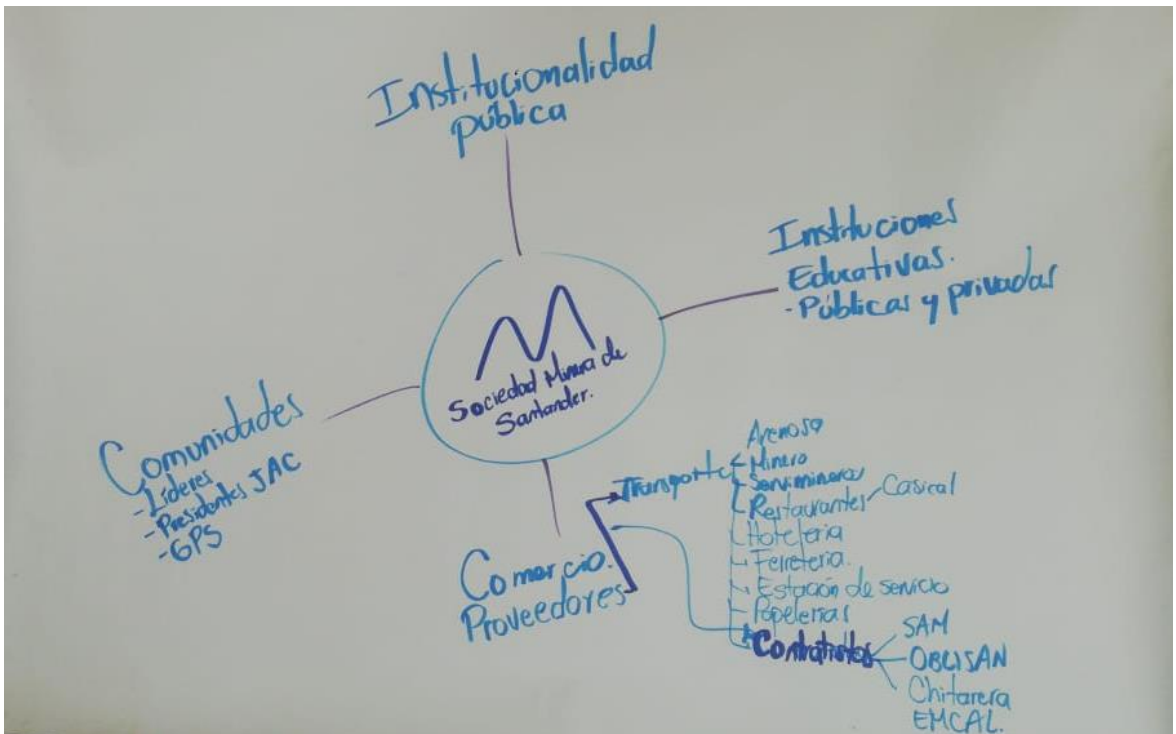 Institucionalidad
pública
Instituciones
Educativas.
- Públicas y privadas
Sociedad Minera de
Santander.
Comunidades
- Líderes
- Presidentes JAC
- GPS
Comercio.
Proveedores
Transporte
Arenosa
Minero
Servimineros
Restaurantes
Casical
Hoteleria
Ferreteria.
Estación de servicio
Papelerias
Contratistas
SAM
OBLISAN
Chitarera
EMCAL.